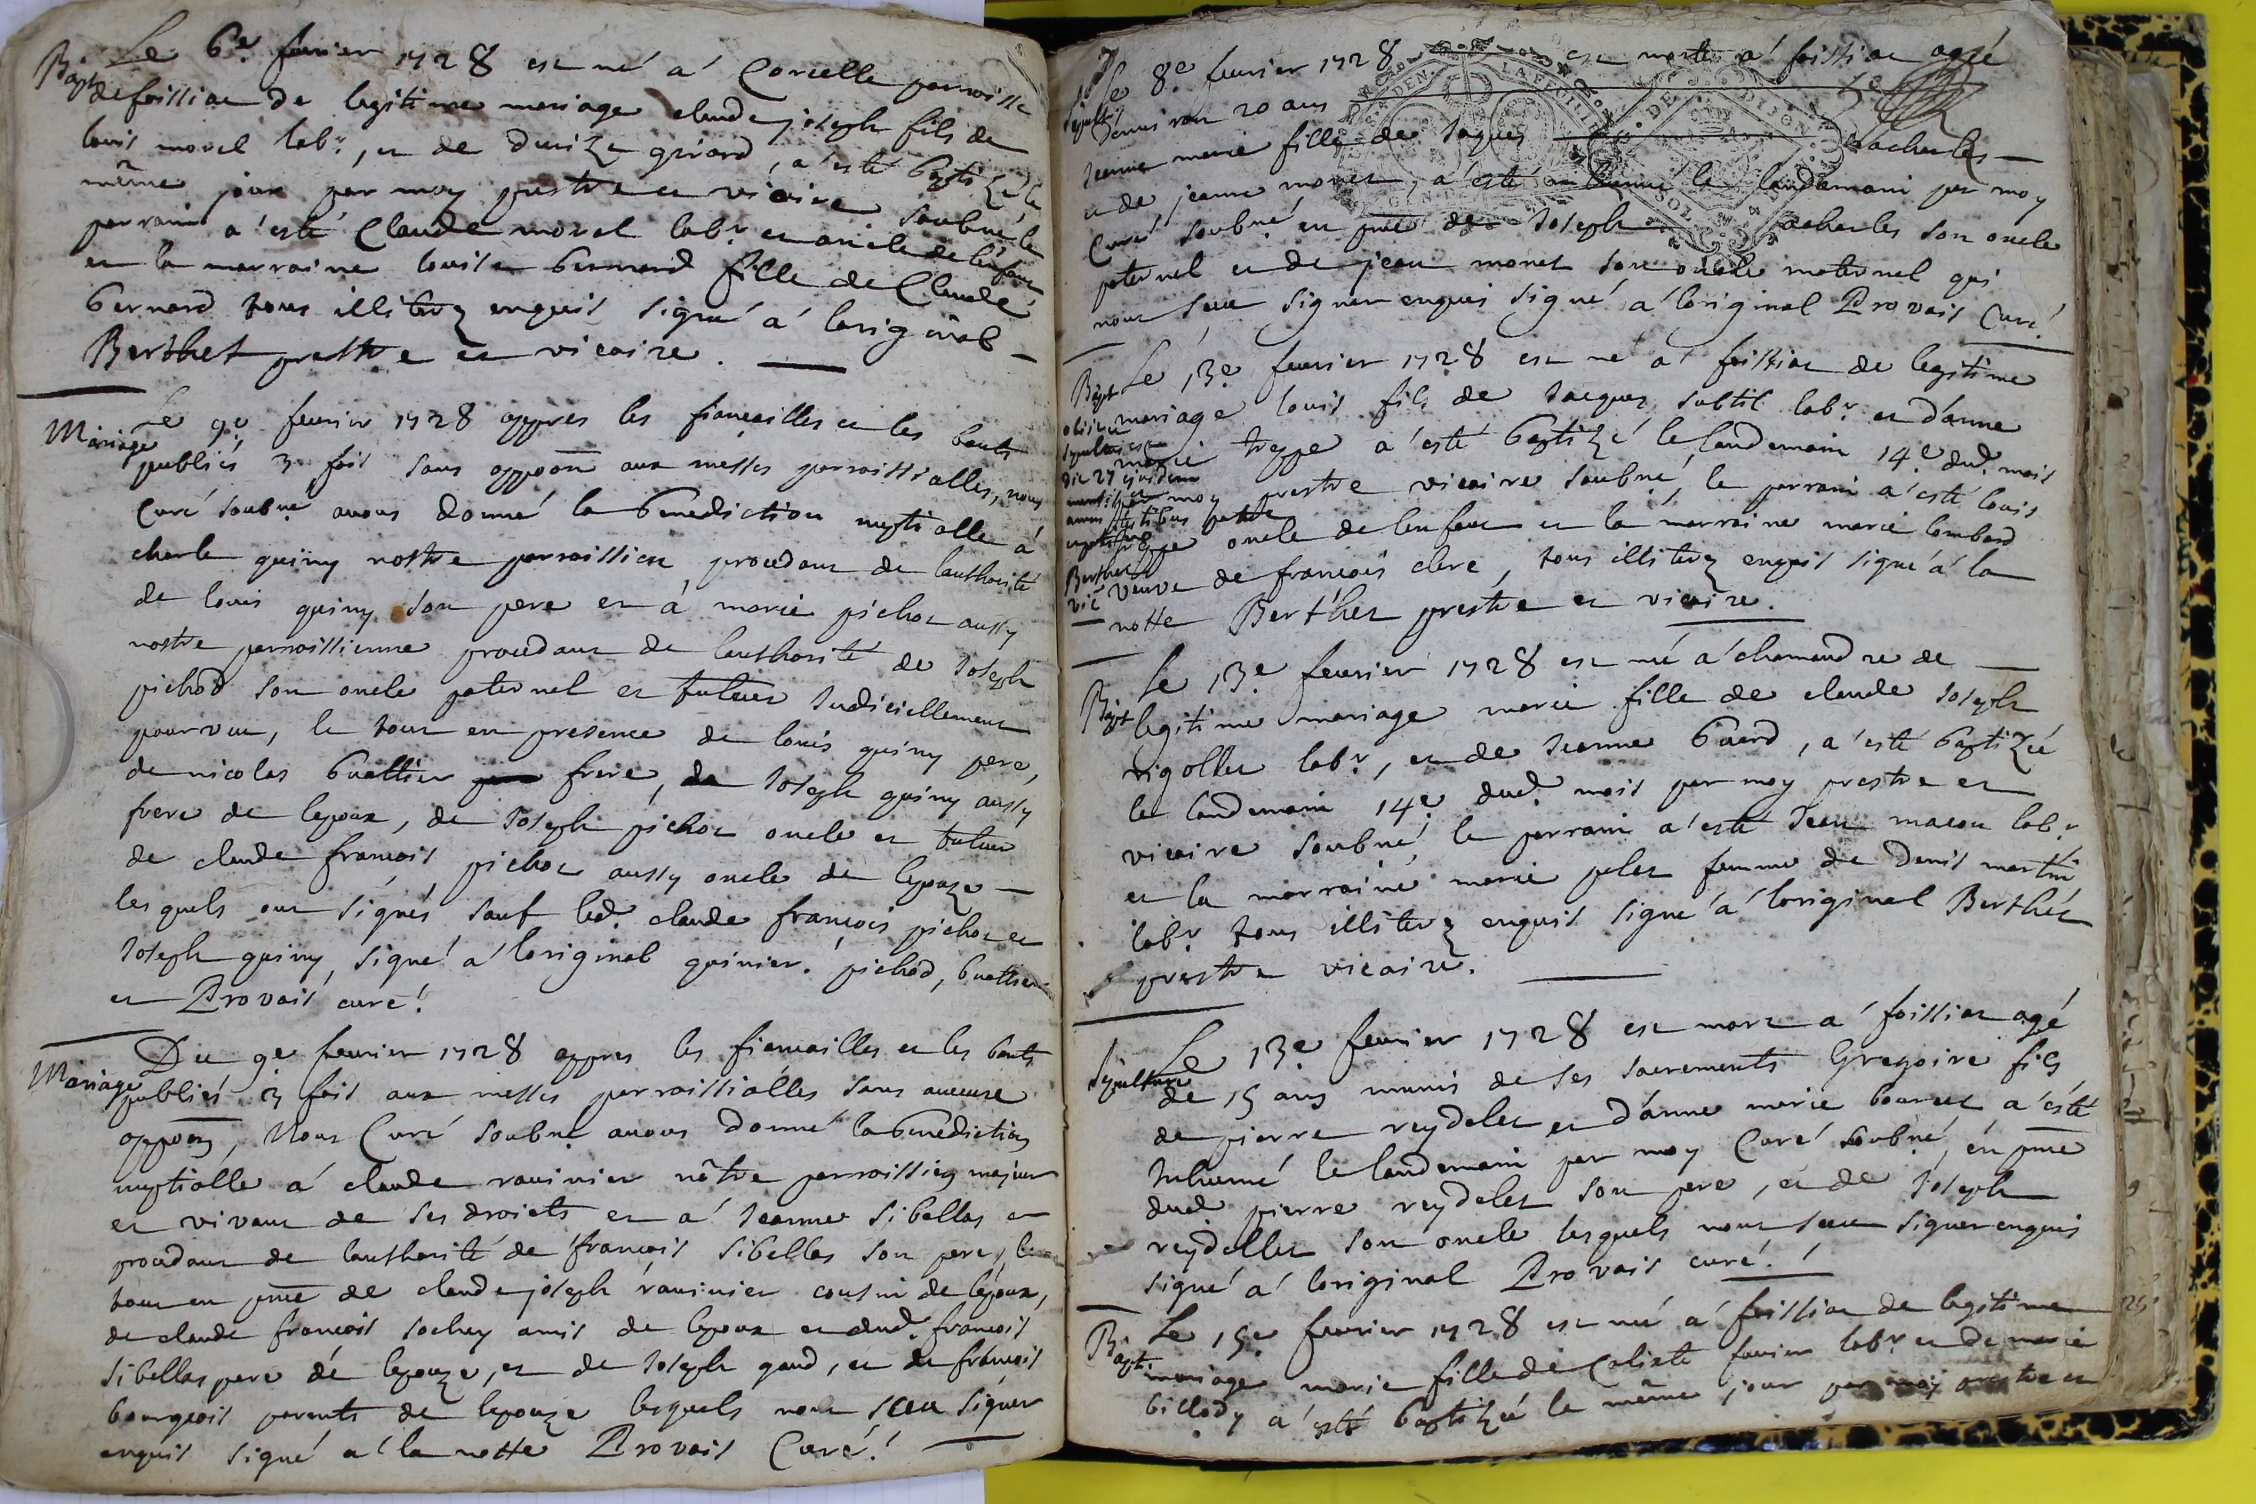 Bapt. Le 6e. feurier 1728 est né a' Corcelle parroisse
de foissiac de legitime mariage claude joseph fils de
louis morel labr., et de Denize girard, a' esté baptizé le
même jour par moy prestre et vicaire soubné le
parrain a' esté Claude morel labr. et oncle de lenfant
et la marraine louise bernard fille de Claude
bernard tous illiterez enquis signé a' loriginal
Berthet prestre et vicaire.
Mariage Le 9e. feurier 1728 appres les fiancailles et les bants
publiés 3 fois sans oppoon aux messes parroissialles, nous
Curé soubné auons donné la benediction nuptialle á
charle guiny nostre parroissien, procedant de lauthorité
de louis guiny son pere et á marie pichot aussy
nostre parroissienne procedant de lauthorité de Joseph
pichod son oncle paternel et tuteur Judiciellement
pourvue, le tout en presence de louis guiny pere,
de nicolas buattier frere, de Joseph guiny aussy
frere de lepoux, de Joseph pichot oncle et tuteur
de claude françois pichot aussy oncle de lepouze
lesquels ont signés sauf led. claude françois pichot et
Joseph guiny, signé a' loriginal guinier. pichod, buattier
et Provais curé!
Mariage Du 9e feurier 1728 appres les fiancailles et les bants
publiés 3 fois aux messes parroissialles sans aucune
oppoon, Nous Curé soubné auons donné la benediction
nuptialle a' claude rauinier nôtre parroissien majeur
et vivant de ses droicts et a' Jeanne Sibellas
procedant de lauthorité de françois Sibellas son pere, le
tout en pnce de claude joseph rauinier cousin de lépoux,
de claude françois sochay amis de lepoux et dud. françois
Sibellas pere de lepouze, et de Joseph gaud, et de françois
bourgeois parents de lepouze lesquels nont sceu signer
enquis signé a' la notte Provais Curé!
Le 8e feurier 1728 est morte a' foissiac agée
denuiron 20 ans
Jeanne marie fille de Jaques dacharles
et de jeanne monet, a' esté le landemain par moy
Curé soubné en pnce de Joseph dacharles son oncle
paternel et de jean monet son oncle maternel qui
nont sceu signer enquis signé a' loriginal Provais Curé!
Bapt Le 13e feurier 1728 est né a' foissiac de legitime
mariage louis fils de Jacques subtil labr. et d'anne
marie treppe a' esté baptizé le landemain 14e. dud. mois
par moy prestre vicaire soubné, le parrain a' esté louis
treppe oncle de lenfant et la marraine marie lombard
veuve de françois clerc, tous illiterez enquis signé a' la
notte Berthet prestre et vicaire.
obiit
sepultus est
die 27 ejusdem
testibus
Berthet
vic
Bapt Le 13e feurier 1728 est né a' chamandre de
legitime mariage marie fille de claude Joseph
rigollet labr., et de Jeanne buerd, a' esté baptizée
le landemain 14e. dud. mois par moy prestre et
vicaire soubné, le parrain a' esté Jean macon labr.
et la marraine marie pelet femme de Denis martin
labr. tous illiterez enquis signé a' loriginal Berthet
prestre vicaire.
Sepulture Le 13e. feurier 1728 est mort a' foissiac agé
de 15 ans munis de ses sacrements Gregoire fils
de pierre reydelet et d'anne marie bourcet a' esté
Inhumé le landemain par moy Curé soubné, én pnce
dud. pierre reydelet son pere, et de Joseph
reydellet son oncle lesquels nont sceu signer enquis
signé a' loriginal Provais curé!
Bapti. Le 15e feurier 1728 est né á foissiac de legitime
mariage marie fille de Calixte feurier labr. et de marie
billody a' esté baptizée le même jour par moy prestre et